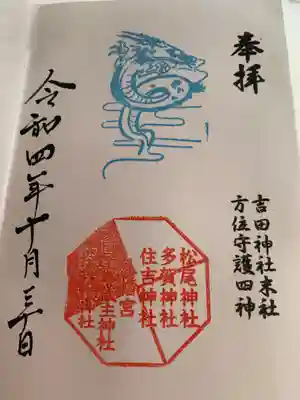 奉拝
吉田神社末社
方位守護四神
松尾神社
多賀神社
住吉神社
宮
主神社
神社
令和四年十月三十日